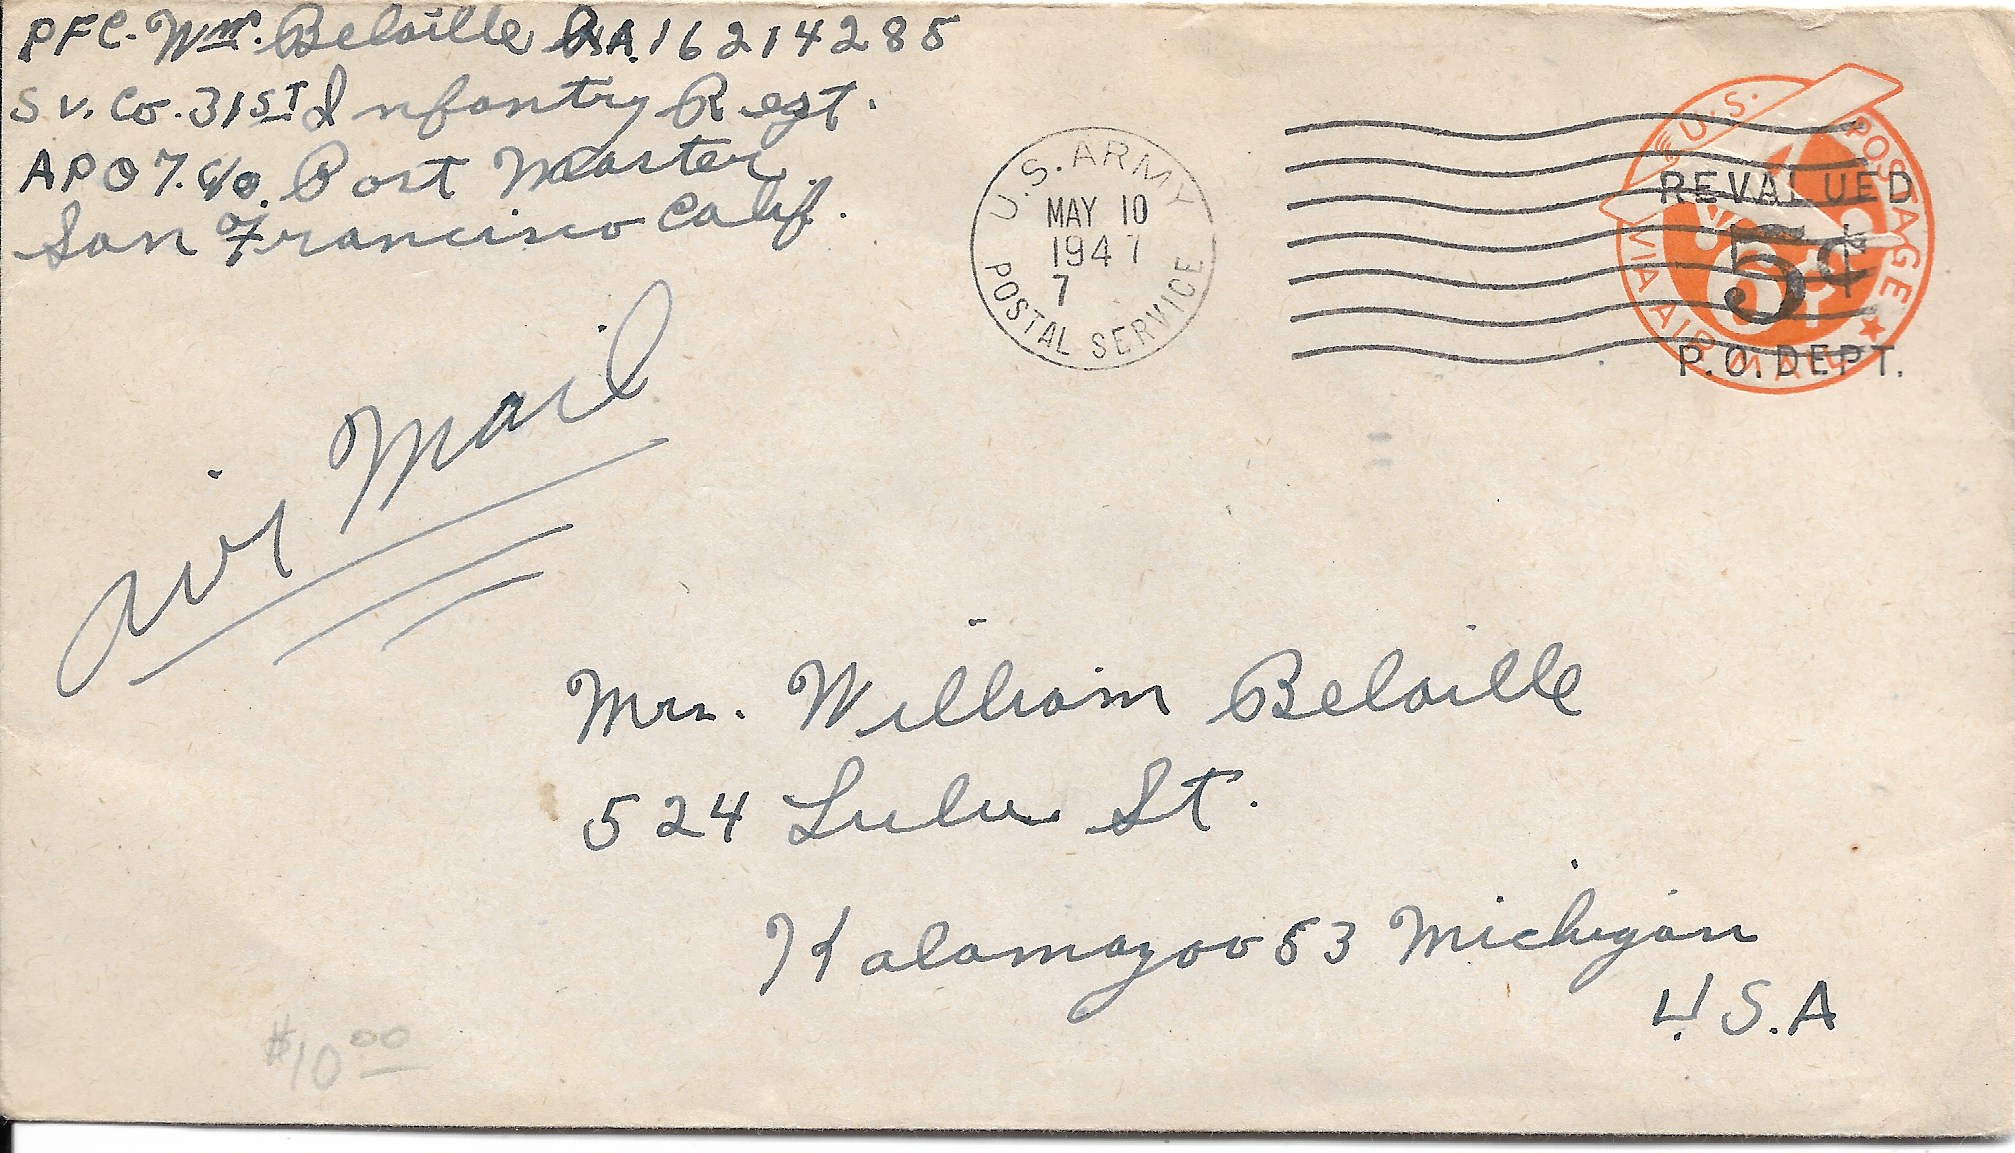 PFC. Wm. Belaille RA.16214285
Sv. Co. 31ST Infantry Regt.
APO 7. c/o. Post Master
San Francisco Calif.
U.S. ARMY
MAY 10
1947
7
POSTAL SERVICE
U.S. POSTAGE
REVALUED
5¢
P.O. DEPT.
VIA AIR MAIL
Air Mail
Mrs. William Belaille
524 Lulu St.
Kalamazoo 53 Michigan
U.S.A
$10.00